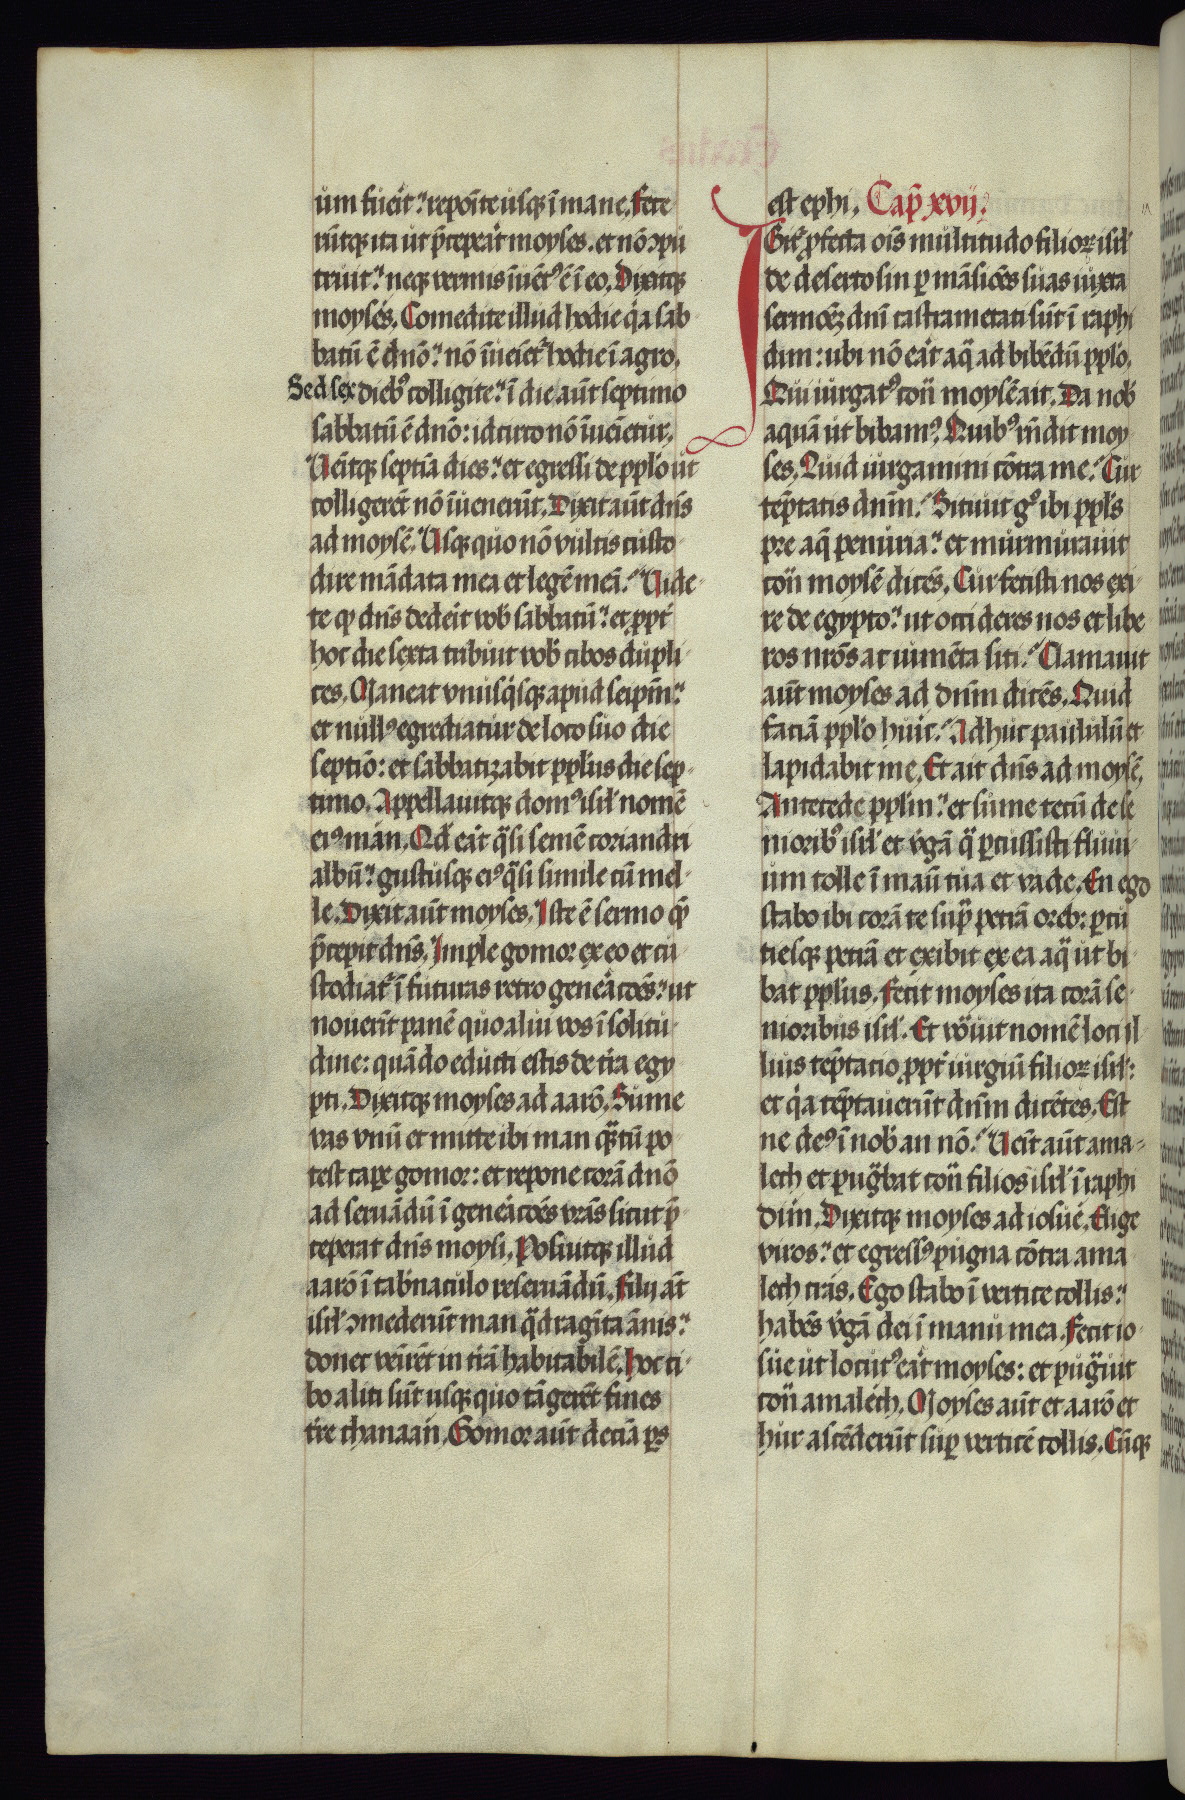 um fuerit: repōite usq̃ ī mane. Fece
rūtq̃ ita ut p̄ceperat moyses. et nō ɔpu
truit: neq̃ vermis īuētꝰ ē ī eo. Dixitq̃
moyses. Comedite illud hodie q̇a sab
batū ē dnō: nō īueiet᷑ hodie ī agro.
Sed sex diebꝰ colligite: ī die aūt septimo
sabbatū ē dnō: idcirco nō īueietur.
Ueītq̃ septīa dies: et egressi de ppl̄o ut
colligerēt nō īuenerūt. Dixit aūt dn̄s
ad moysē. Usq̃quo nō vultis custo
dire mādata mea et legē meā. Uide
te ꝙ dn̄s dederit vob̄ sabbatū: et ꝓpt̄
hoc die sexta tribuit vob̄ cibos dupli
ces. Maneat vnusq̇sq̃ apud seip̄m:
et nullꝰ egrediatur de loco suo die
septīo: et sabbatizabit pplūs die sep
timo. Appellauitq̃ domꝰ isrl̄ nomē
eiꝰ man. Qd̄ erat q̃si semē coriandri
albū: gustusq̃ eiꝰ q̃si simile cū mel
le. Dixit aūt moyses. Iste ē sermo quē
p̄cepit dn̄s. Imple gomor ex eo et cu
stodiat᷑ ī futuras retro geneātōes: ut
nouerīt panē quo alui vos ī solitu
dine: quādo educti estis de t̄ra egy
pti. Dixitq̃ moyses ad aarō. Sume
vas vnū et mitte ibi man q̃tū po
test cape gomor: et repone corā dnō
ad seruādū ī geneātōes vr̄as sicut p̄
ceperat dn̄s moysi. Posuitq̃ illud
aarō ī tab̄naculo reseruādū. Filij aūt
isrl̄ ɔmederūt man q̃dragīta ānis:
donec veīret in t̄rā habitabilē. hoc ci
bo aliti sūt usq̃quo tāgerēt fines
t̄re chanaan. Gomor aūt decīa ps
est ephi. Cap̄ xvij.
IGit᷑ ꝓfecta oīs multitudo filioꝝ isrl̄
de deserto sin ꝑ māsiōes suas iuxta
sermoēȝ dnī castrametati sūt ī raphi
dim: ubi nō erat aq̃ ad bibēdū ppl̄o.
Qui iurgatꝰ cōtͣ moysē ait. Da nob̄
aquā ut bibamꝰ. Quibꝰ rn̄dit moy
ses. Quid iurgamini cōtra me. Cur
tēptatis dnm̄. Sitiuit gͦ ibi ppls̄
pre aq̃ penuria: et murmurauit
cōtͣ moysē dicēs. Cur fecisti nos exi
re de egypto: ut occideres nos et libe
ros nr̄os ac iumēta siti. Clamauit
aūt moyses ad dnm̄ dicēs. Quid
faciā ppl̄o huic. Adhuc paululū et
lapidabit me. Et ait dn̄s ad moysē.
Antecede pplm̄: et sume tecū de se
nioribꝰ isrl̄ et v̇gā q̃ ꝑcussisti fluui
um tolle ī manū tua et vade. En ego
stabo ibi corā te sup̄ petrā oreb: ꝑcu
tiesq̃ petrā et exibit ex ea aq̃ ut bi
bat pplūs. Fecit moyses ita corā se
nioribus isrl̄. Et vocauit nomē loci il
lius tēptatio ꝓpt̄ iurgiū filioꝝ isrl̄:
et q̇a tēptauerūt dnm̄ dicētes. Est
ne deꝰ ī nob̄ an nō. Ueīt aūt ama
lech et pugnabat cōtͣ filios isrl̄ ī raphi
dim. Dixitq̃ moyses ad iosue. Elige
viros: et egressꝰ pugna cōtra ama
lech cras. Ego stabo ī vertice collis:
habēs v̇gā dei ī manu mea. Fecit io
sue ut locutꝰ erat moyses: et pugnauit
cōtͣ amalech. Moyses aūt et aarō et
hur ascēderūt sup̄ verticē collis. Cūq̃